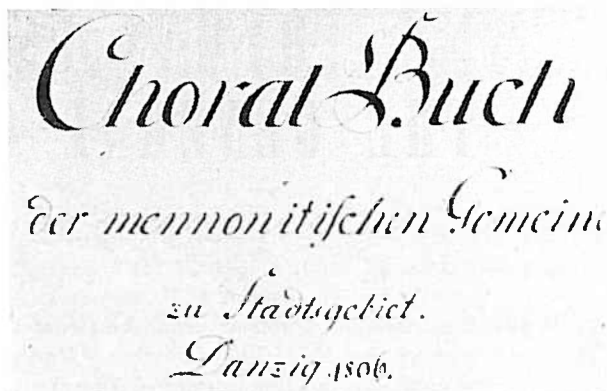 Choral Buch
der mennonitischen Gemein
zu Stadtsgebiet.
Danzig 1806.